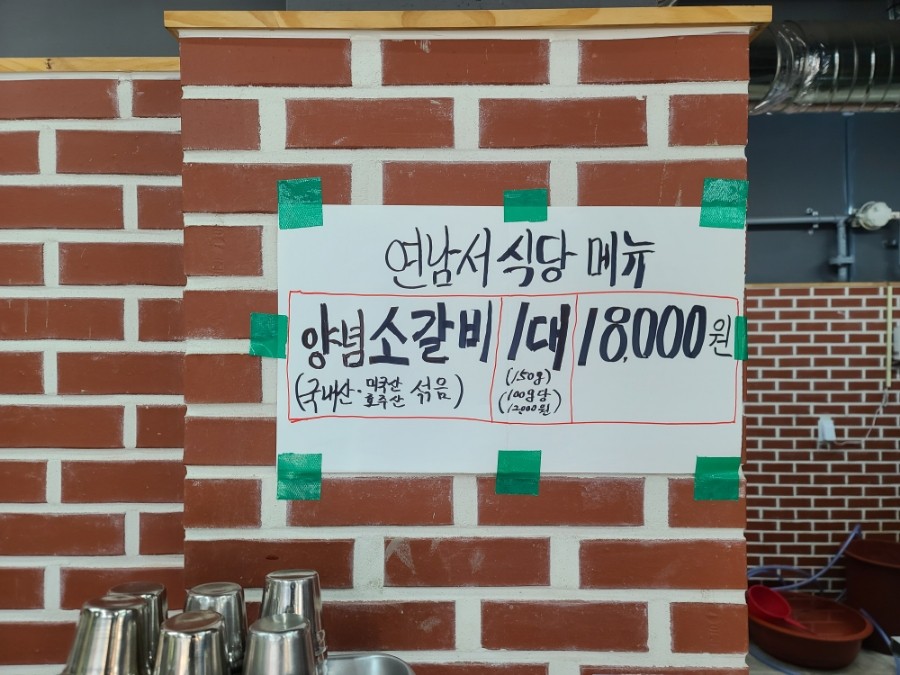 연남서 식당 메뉴
양념 소갈비 1대 18,000원
(국내산·미국산 호주산 섞음)
(150g)
(100g당 12,000원)